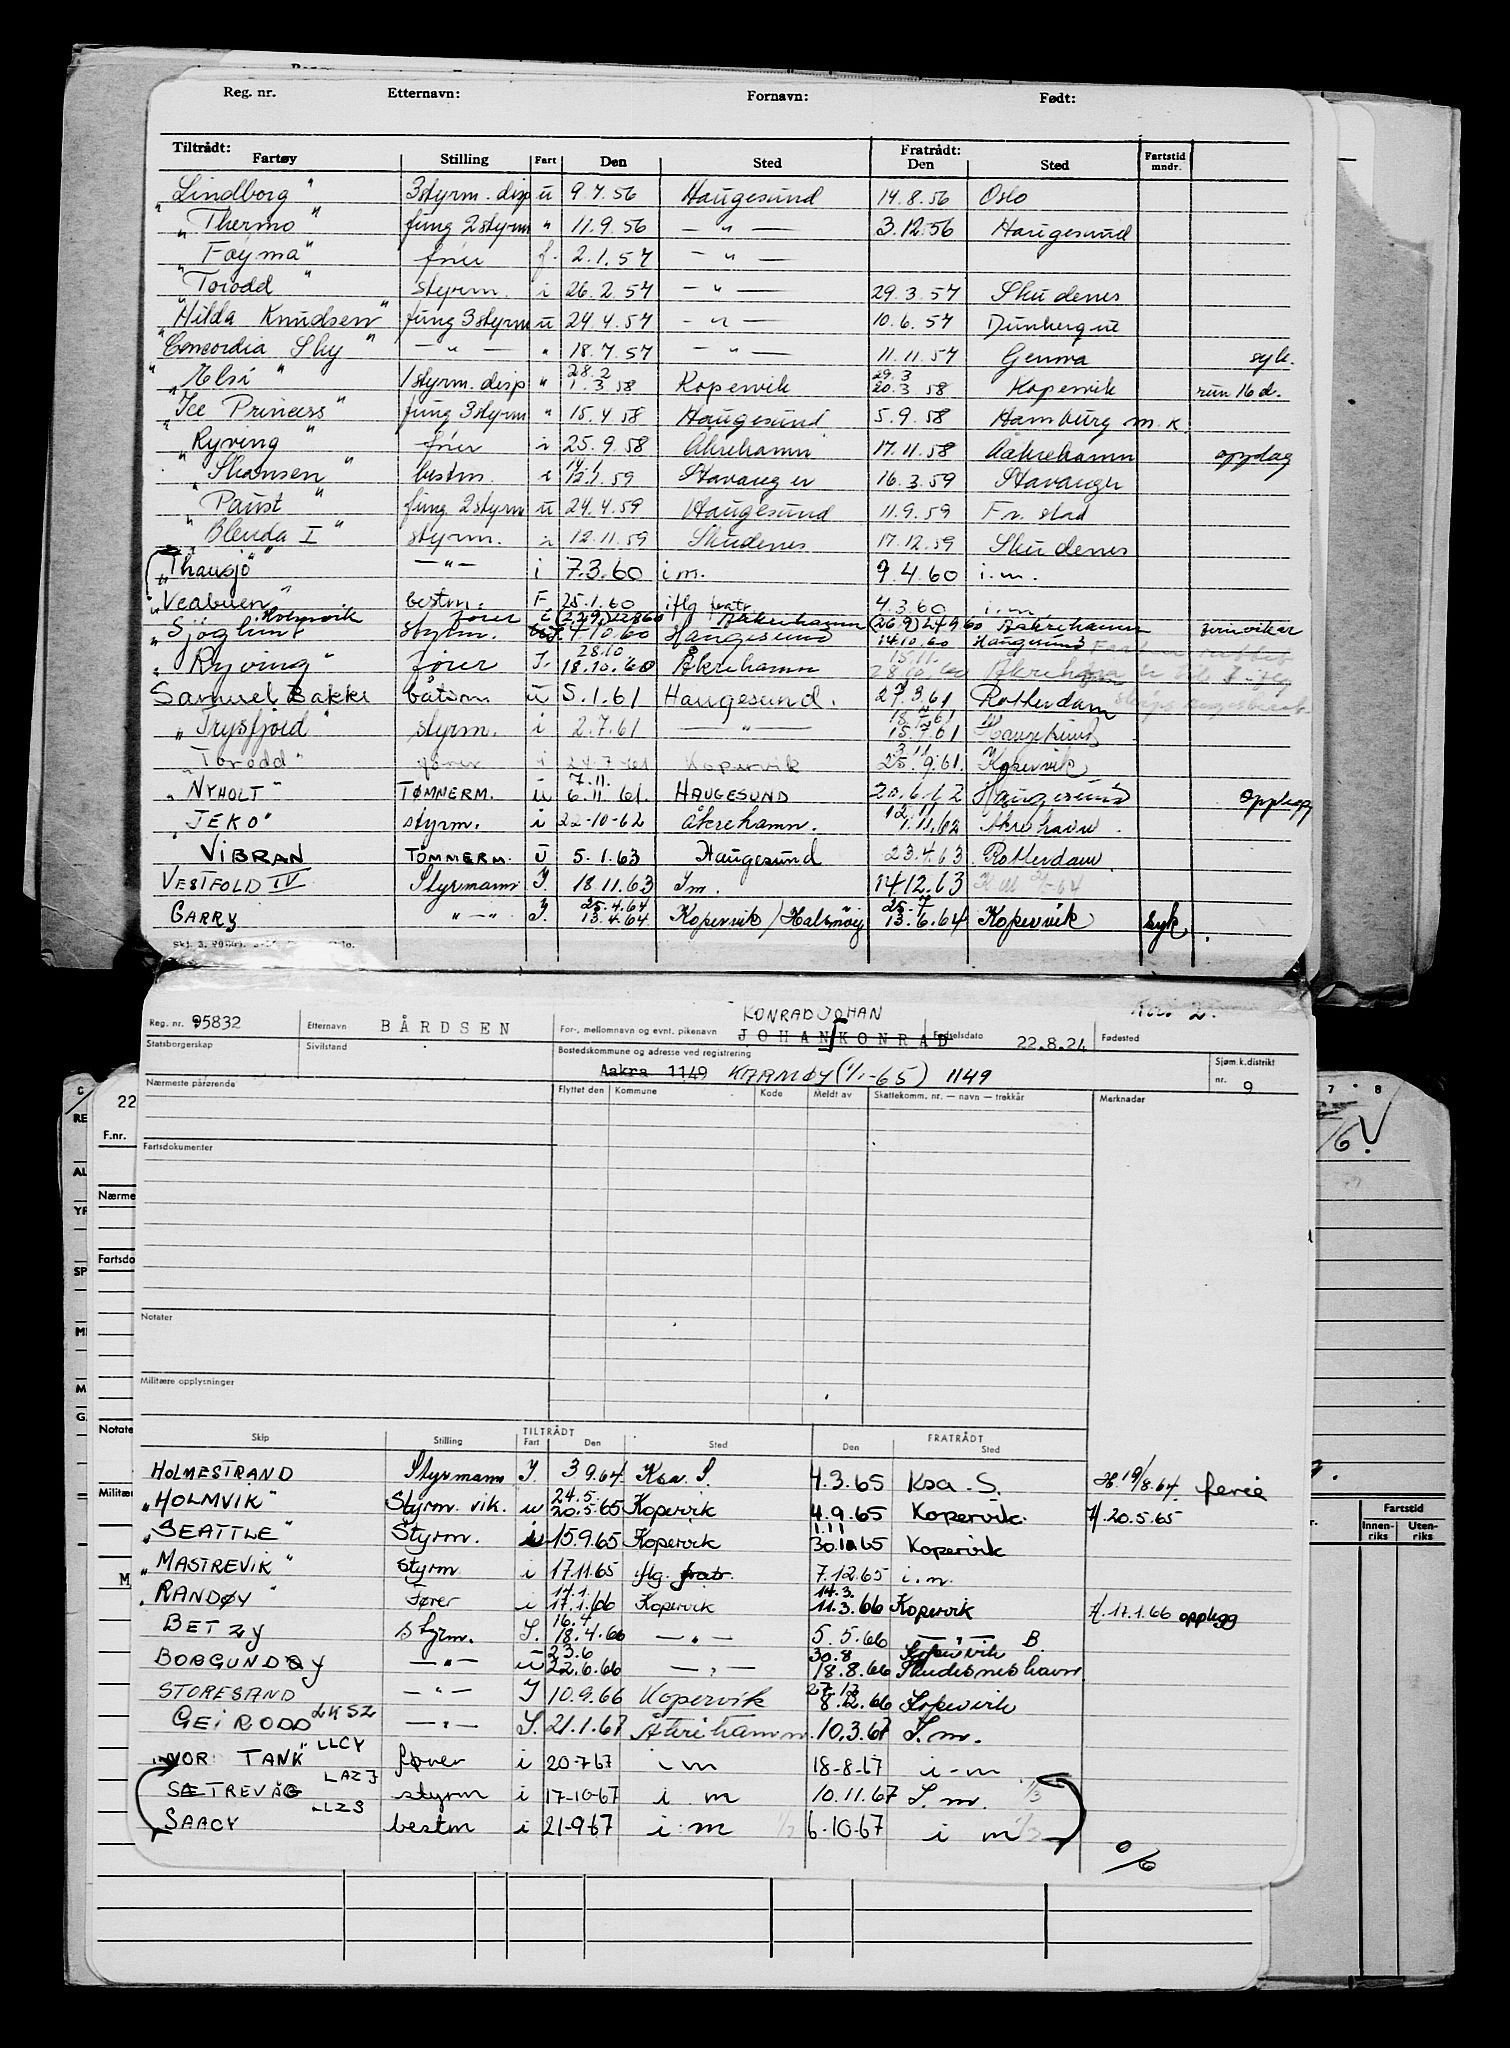 Reg. nr. Etternavn: Fornavn: Født:
Tiltrådt: Fratrådt:
Fartøy Stilling Fart Den Sted Den Sted Fartstid mndr.
"Lindborg" 3styrm. disp u 9.7.56 Haugesund 14.8.56 Oslo
"Thermo" fung 2styrm " 11.9.56 — " — 3.12.56 Haugesund
"Føyma" fører f. 2.1.57 — " —
"Torodd" styrm. i 26.2.57 — " — 29.3.57 Skudenes
"Hilda Knudsen" fung 3styrm u 24.4.57 — " — 10.6.57 Dunkerque
"Concordia Sky" — " — " 18.7.57 — " — 11.11.57 Genua syk.
28.2 29.3
"Elsi" 1styrm. disp " 1.3.58 Kopervik 20.3.58 Kopervik run 16 d.
"Ice Princess" fung 3styrm " 15.4.58 Haugesund 5.9.58 Hamburg m.k.
"Ryving" fører i 25.9.58 Åkrehamn 17.11.58 Aakrehamn opplag
"Skansen" bestm. i 12.1.59 Stavanger 16.3.59 Stavanger
"Paust" fung 2styrm u 24.4.59 Haugesund 11.9.59 Fr. stad
"Blenda I" styrm. 12.11.59 Skudenes 17.12.59 Skudenes
"Thausjø" — " — i 7.3.60 i.m. 9.4.60 i.m.
"Veabuen" bestm. F 25.1.60 iflg fratr. 4.3.60 i.m.
Holmvik fører (22.9) 22.8.60 Aakrehamn (26.9) 24.9.60 Aakrehamn ferievikar
"Sjøglimt" styrm. 7.10.60 Haugesund 14.10.60 Haugesund
28.10 15.11.
"Ryving" fører I. 18.10.60 Åkrehamn 28.10.60
Samuel Bakke båtsm. u 5.1.61 Haugesund. 27.3.61 Rotterdam
18.7.61
"Trysfjord" styrm. i 2.7.61 — " — 15.7.61 Haugesund
3.11
"Torodd" fører i 24.7.61 Kopervik 25.9.61. Kopervik
7.11.
"NYHOLT" TØMMERM. u 6.11.61. HAUGESUND 20.6.62 Haugesund opplegg
12.11
"JEKO" styrm. i 22-10-62 Åkrehamn. 1.11.62 Åkrehavn
VIBRAN TÖMMERM. U 5.1.63 Haugesund 23.4.63 Rotterdam
VESTFOLD IV Styrmann I. 18.11.63 I m. 14.12.63
25.4.64 25.7
GARRY " — " I. 13.4.64 Kopervik / Halsnøy 13.6.64 Kopervik syk.
KONRAD JOHAN Kort 2.
Reg. nr. 95832 Etternavn BÅRDSEN For-, mellomnavn og evnt. pikenavn JOHAN KONRAD Fødselsdato 22.8.24 Fødested
Statsborgerskap Sivilstand Bostedskommune og adresse ved registrering Sjøm.k.distrikt
Aakra 1149 KARMØY (1/1-65) 1149 nr. 9
Nærmeste pårørende Flyttet den Kommune Kode Meldt av Skattekomm. nr. — navn — trekkår Merknader
Fartsdokumenter
Notater
Militære opplysninger
TILTRÅDT FRATRÅDT
Skip Stilling Fart Den Sted Den Sted
HOLMESTRAND Styrmann I. 3.9.64. Ksa. S. 4.3.65 Ksa. S. H. 19/8.64. ferie
24.5.
"HOLMVIK" Styrm. vik. u 20.5.65 Kopervik 4.9.65 Kopervik. H. 20.5.65
1.11
"SEATTLE" Styrm. u 15.9.65 Kopervik 30.10.65 Kopervik
"MASTREVIK" styrm i 17.11.65 iflg. fratr. 7.12.65 i.m.
14.1. 14.3.
"RANDØY Fører i 17.1.66 Kopervik 11.3.66 Kopervik H. 17.1.66 opplegg
16.4
BETZY styrm. I. 18.4.66 — " — 5.5.66 — " — B.
23.6 30.8 Kopervik
BORGUNDØY — " — u 22.6.66 — " — 18.8.66 Skudesneshavn
27.12
STORESAND — " — I 10.9.66 Kopervik 8.12.66 Kopervik
GEIRODD LKSZ — " — I. 21.1.67 Åkrehamn. 10.3.67 I.m.
"NOR TANK" LLCY fører i 20-7-67 i m 18-8-67 i-m
SÆTREVÅG LAZJ styrm i 17-10-67 i m 10.11.67 I.m. 1/3
SAACY LLZS bestm i 21-9-67 i m 6-10-67 i m
%
22
F.nr.
Nærme
Fartsdo
Notate
Militær
Fartstid
Innenriks Utenriks